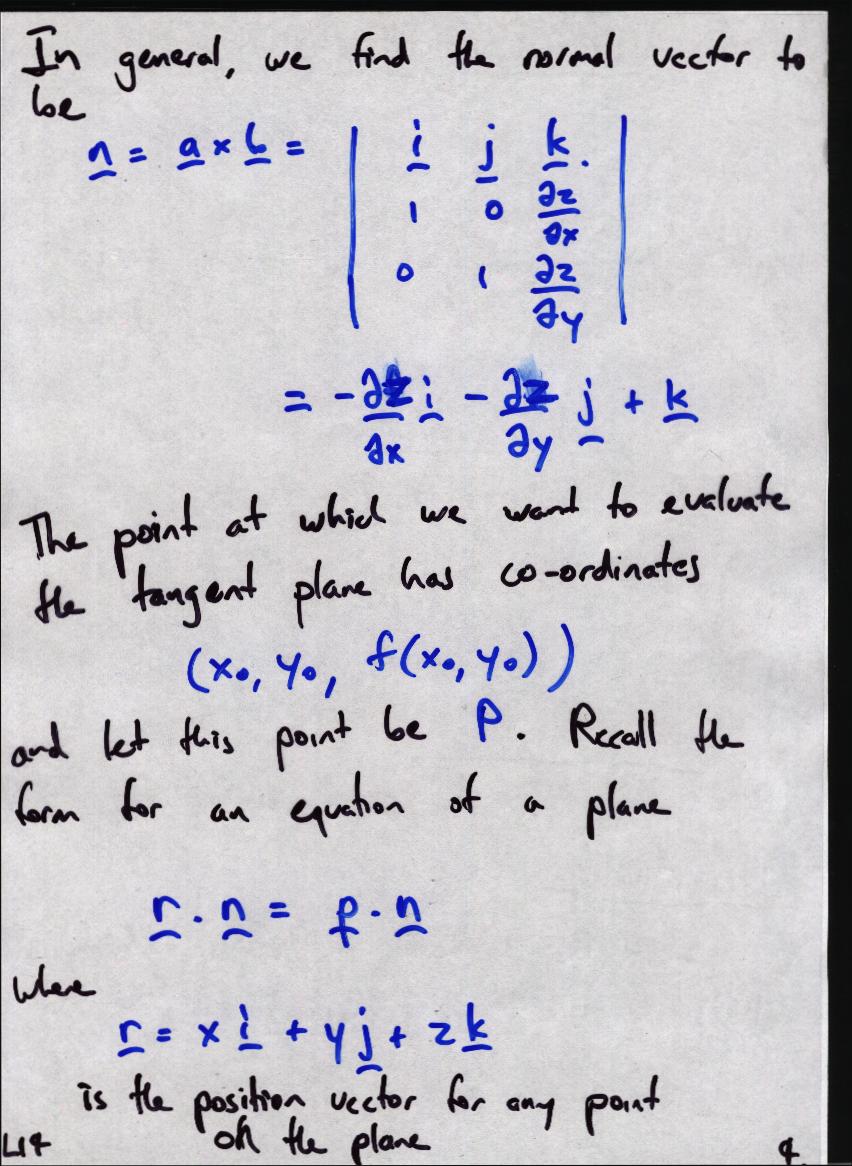 In general, we find the normal vector to
be
n = a × b = | i j k. |
| 1 0 ∂z/∂x |
| 0 1 ∂z/∂y |
= -∂z/∂x i - ∂z/∂y j + k
The point at which we want to evaluate
the tangent plane has co-ordinates
(x₀, y₀, f(x₀, y₀))
and let this point be P. Recall the
form for an equation of a plane
r . n = p . n
where
r = x i + y j + z k
is the position vector for any point
on the plane
L14 4